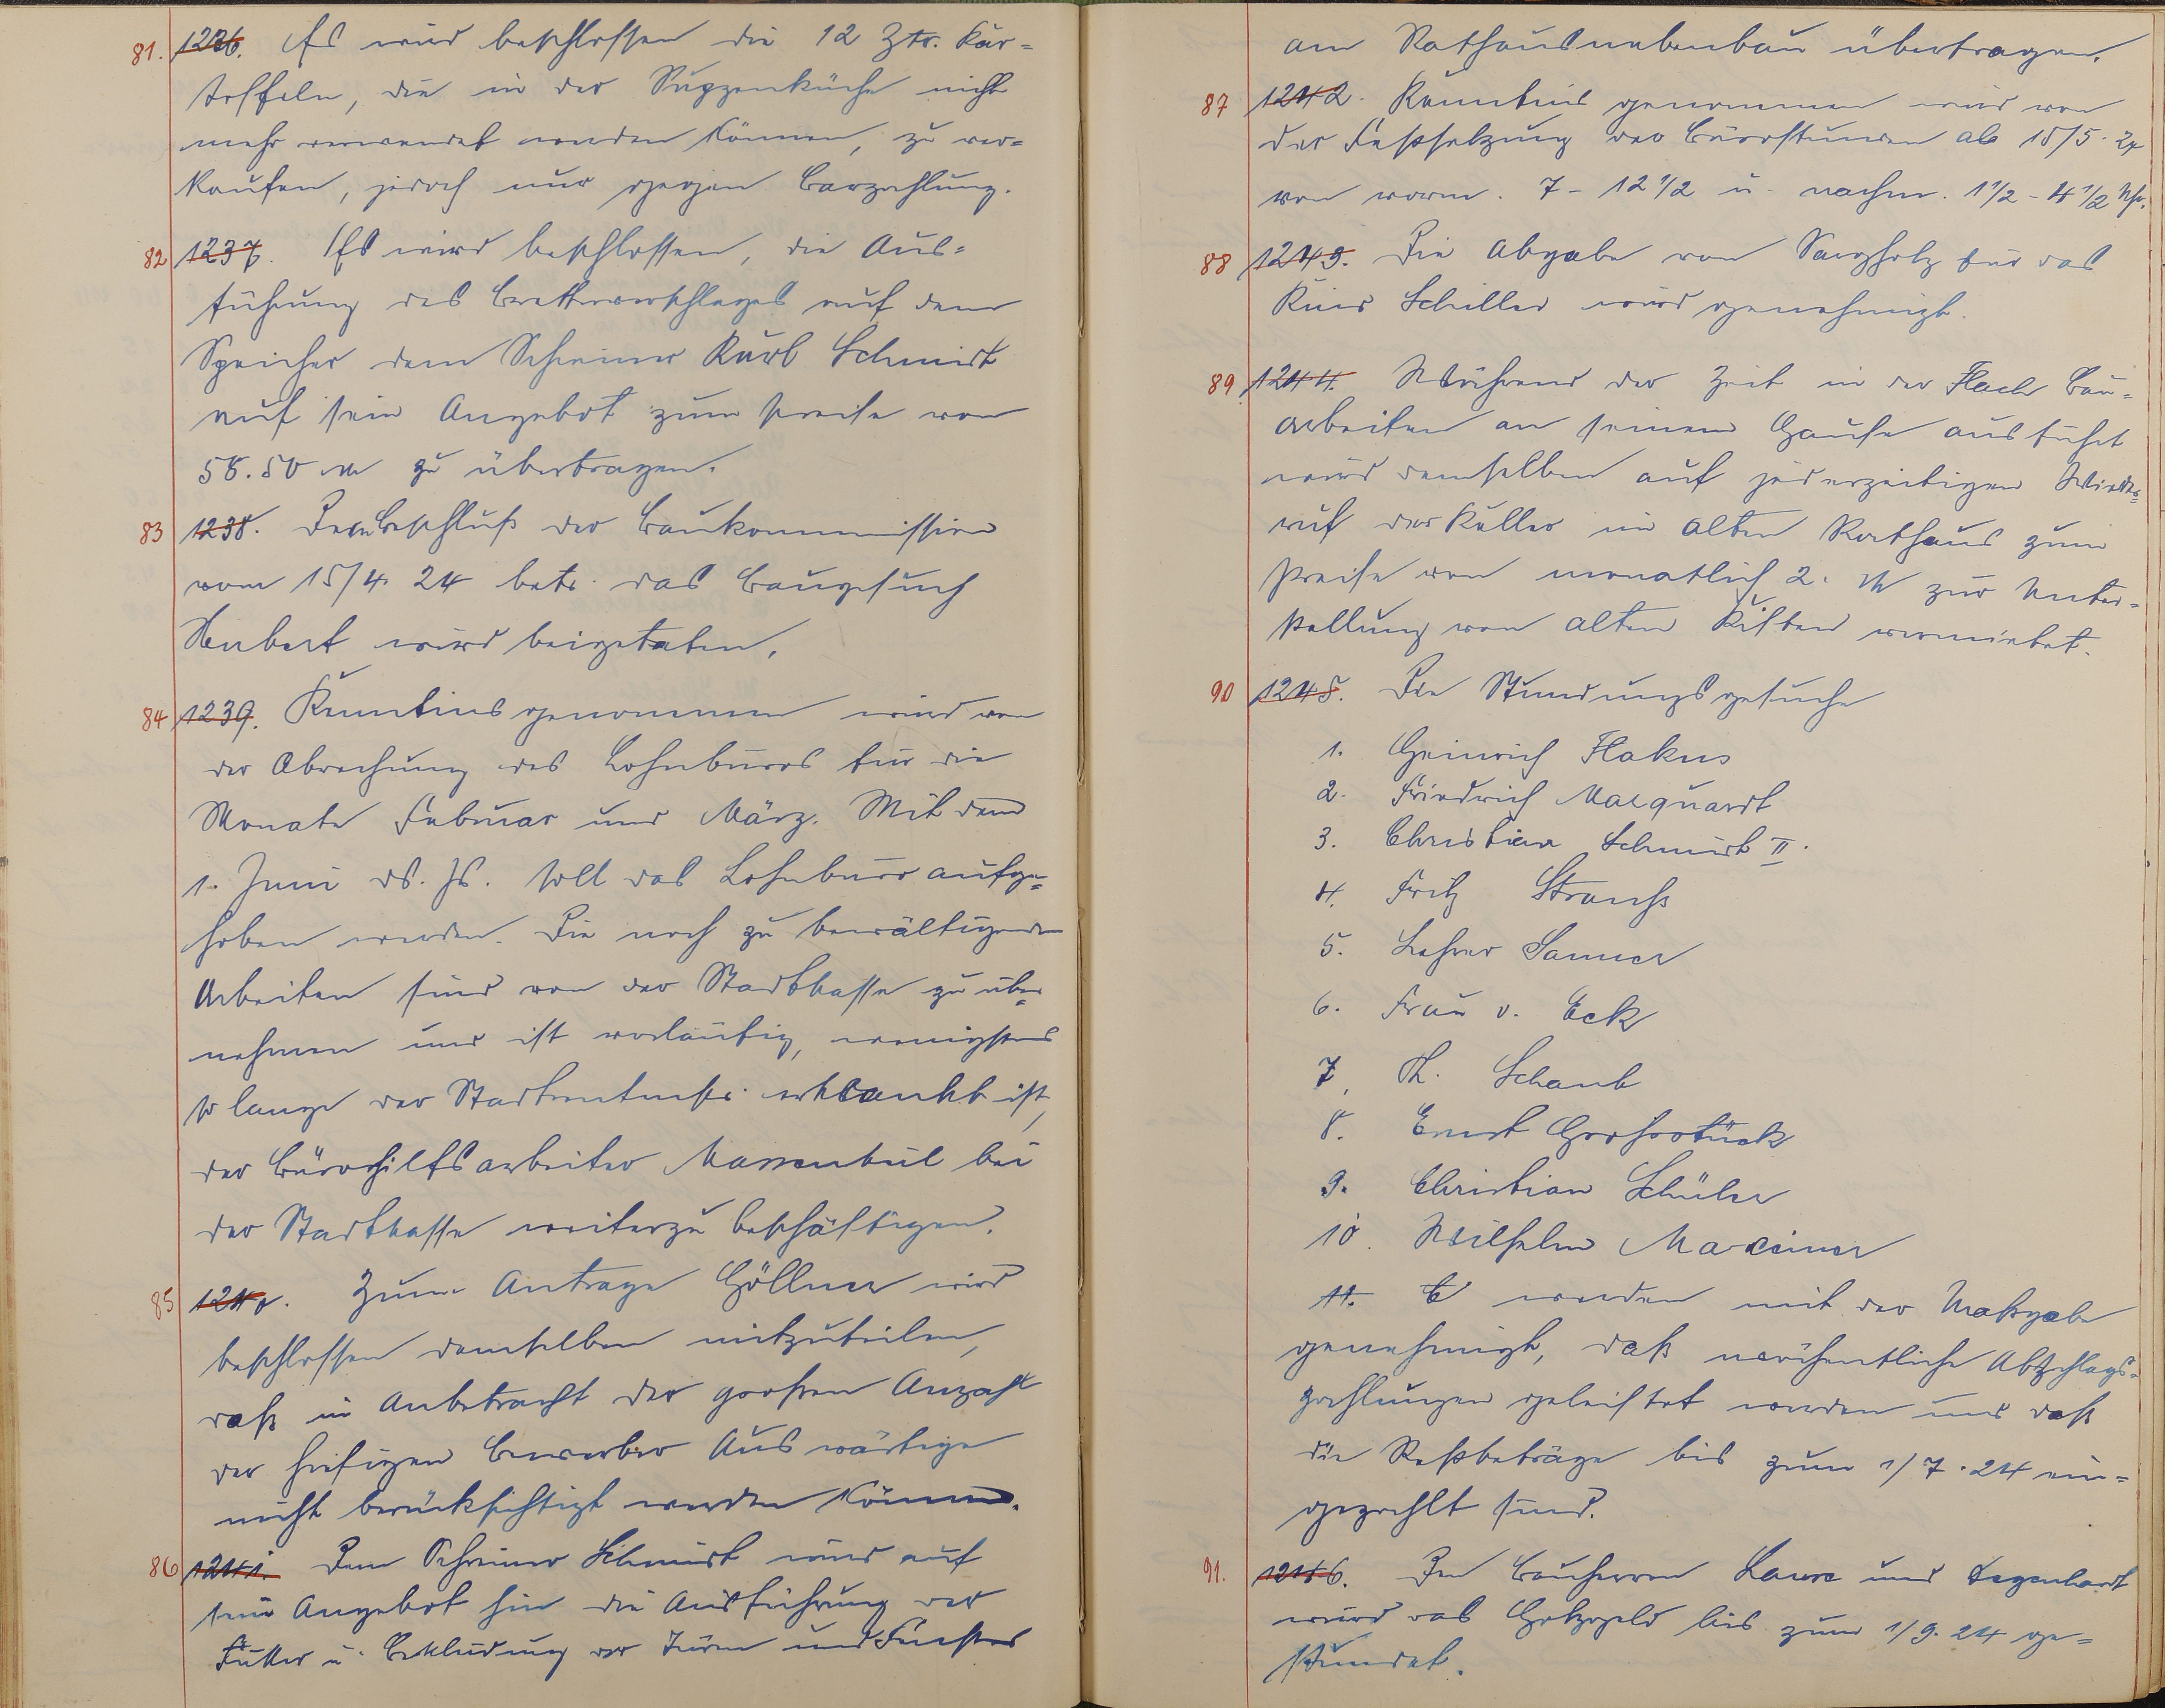 81. 1236. Es wird beschlossen die 12 Ztr. Kar-
toffeln, die in der Suppenküche nicht
mehr verwendet werden können, zu ver-
kaufen, jedoch nur gegen Barzahlung.
82 1237. Es wird beschlossen, die Aus-
führung des Bretterverschlages auf dem
Speicher dem Schreiner Karl Schmidt
auf sein Angebot zum Preise von
58.50 M zu übertragen.
83 1238. Dem Beschluß der Baukommission
vom 15/4. 24 betr. das Baugesuch
Heubert wird beigetreten.
84 1239. Kenntnis genommen wird von
der Abrechnung des Lohnbüros für die
Monate Februar und März. Mit dem
1. Juni ds. Js. soll das Lohnbüro aufge-
hoben werden. Die noch zu bewältigenden
Arbeiten sind von der Stadtkasse zu über-
nehmen und ist vorläufig, wenigstens
so lange der Stadtrentmstr. erkrankt ist,
der Bürohilfsarbeiter bei
der Stadtkasse weiterzu beschäftigen.
85 1240. Zum Antrage Göllner wird
beschlossen demselben mitzuteilen,
daß in Anbetracht der großen Anzahl
der hiesigen Bewerber Auswärtige
nicht berücksichtigt werden können.
86 1241. Dem Schreiner Schmidt wird auf
sein Angebot hin die Ausführung der
Futter u. Bekleidung der Türen und Fenster
am Rathausnebenbau übertragen.
87 1242. Kenntnis genommen wird von
der Festsetzung der Bürostunden ab 15/5. 24
von vorm. 7 - 12 1/2 u. nachm. 1 1/2 - 4 1/2 Uhr.
88 1243. Die Abgabe von Sargholz für das
Kind Schiller wird genehmigt.
89 1244. Während der Zeit in der Flach Bau-
arbeiten an seinem Hause ausführt
wird demselben auf jederzeitigen Wider-
ruf der Keller im alten Rathaus zum
Preise von monatlich 2. M zur Unter-
stellung von alten Kisten vermietet.
90 1245. Die Stundungsgesuche
1. Heinrich Flakus
2. Friedrich Marquardt
3. Christian Schmidt II.
4. Fritz Strauß
5. Lehrer Sanner
6. Frau v. Eck
7. Th. Schaub
8. Ernst Großstück
9. Christian Schüler
10. Wilhelm Maxeiner
11. werden mit der Maßgabe
genehmigt, daß wöchentliche Abschlags-
zahlungen geleistet werden und daß
die Restbeträge bis zum 1/7. 24 ein-
gezahlt sind.
91. 1246. Den Bauherren und Degenhardt
wird das Holzgeld bis zum 1/9. 24 ge-
stundet.